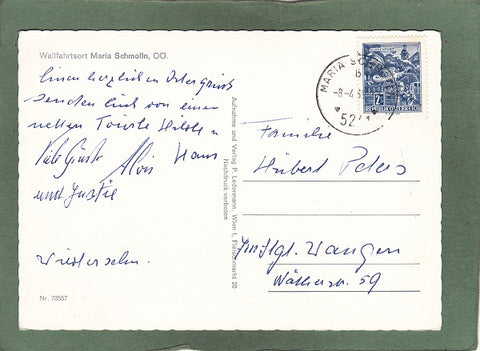 Wallfahrtsort Maria Schmolln, OÖ.
Einen herzlichen Ostergruß
senden Euch von einer
netten
Viele Grüße Alois Hans
und Gustie
Wiedersehn.
Nr. 78557
Aufnahme und Verlag P. Ledermann, Wien I, Fleischmarkt 20
Nachdruck verboten
MARIA SC
-8.-4.6
52
REPUBLIK ÖSTERREICH
Familie
Hubert Peters
Wangen
59